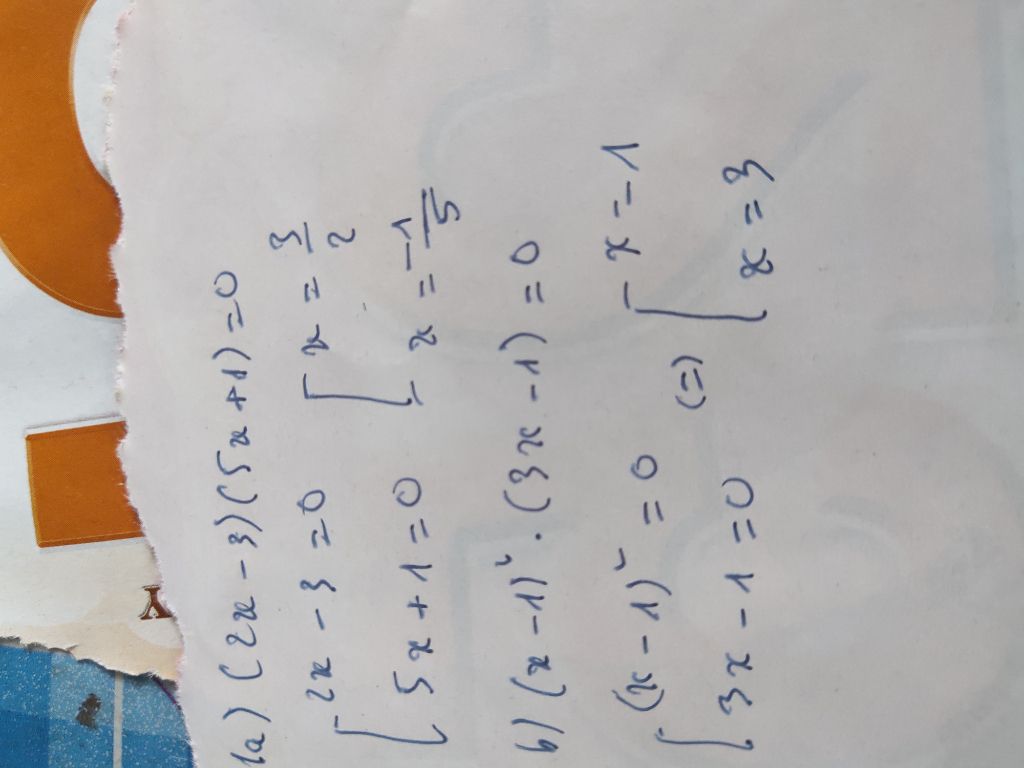 1a) (2x - 3)(5x + 1) = 0
[ 2x - 3 = 0 [ x = 3/2
5x + 1 = 0 x = -1/5
b) (x - 1)² . (3x - 1) = 0
[ (x - 1)² = 0 (=) [ x = 1
3x - 1 = 0 x = 3